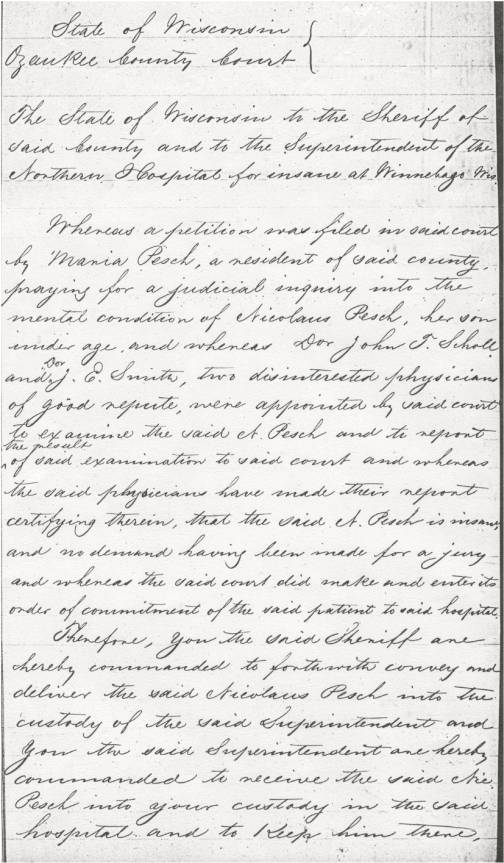 State of Wisconsin {
Ozaukee County Court
The State of Wisconsin to the Sheriff of
said County and to the Superintendent of the
Northern Hospital for insane at Winnebago Wis
Whereas a petition was filed in said court
by Maria Pesch, a resident of said county,
praying for a judicial inquiry into the
mental condition of Nicolaus Pesch, her son
under age, and whereas Dor John T. Scholl
Dor
and J. E. Smith, two disinterested physicians
of good repute, were appointed by said court
to examine the said N. Pesch and to report
the result
of said examination to said court and whereas
the said physicians have made their report
certifying therein, that the said N. Pesch is insane,
and no demand having been made for a jury—
and whereas the said court did make and enter its
order of commitment of the said patient to said hospital.
Therefore, you the said Sheriff are
hereby commanded to forthwith convey and
deliver the said Nicolaus Pesch into the
custody of the said Superintendent and
you the said Superintendent are hereby
commanded to receive the said Nic.
Pesch into your custody in the said
hospital and to keep him there,